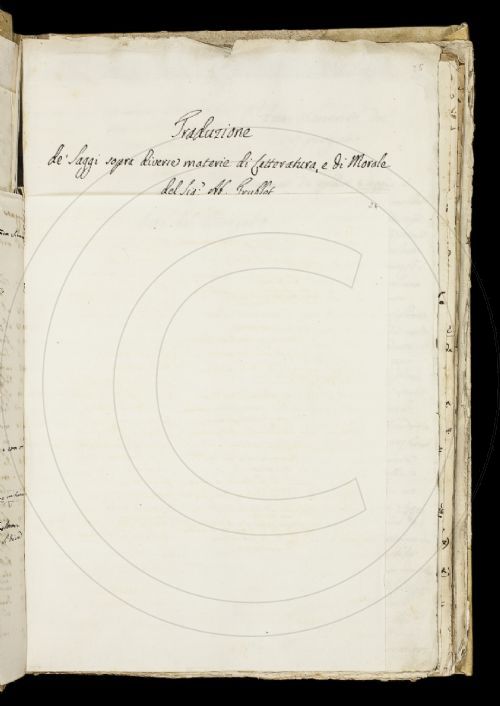 25
Traduzione
de' Saggi sopra diverse materie di Letteratura, e di Morale
del Sig.r Abb. Trublet
24